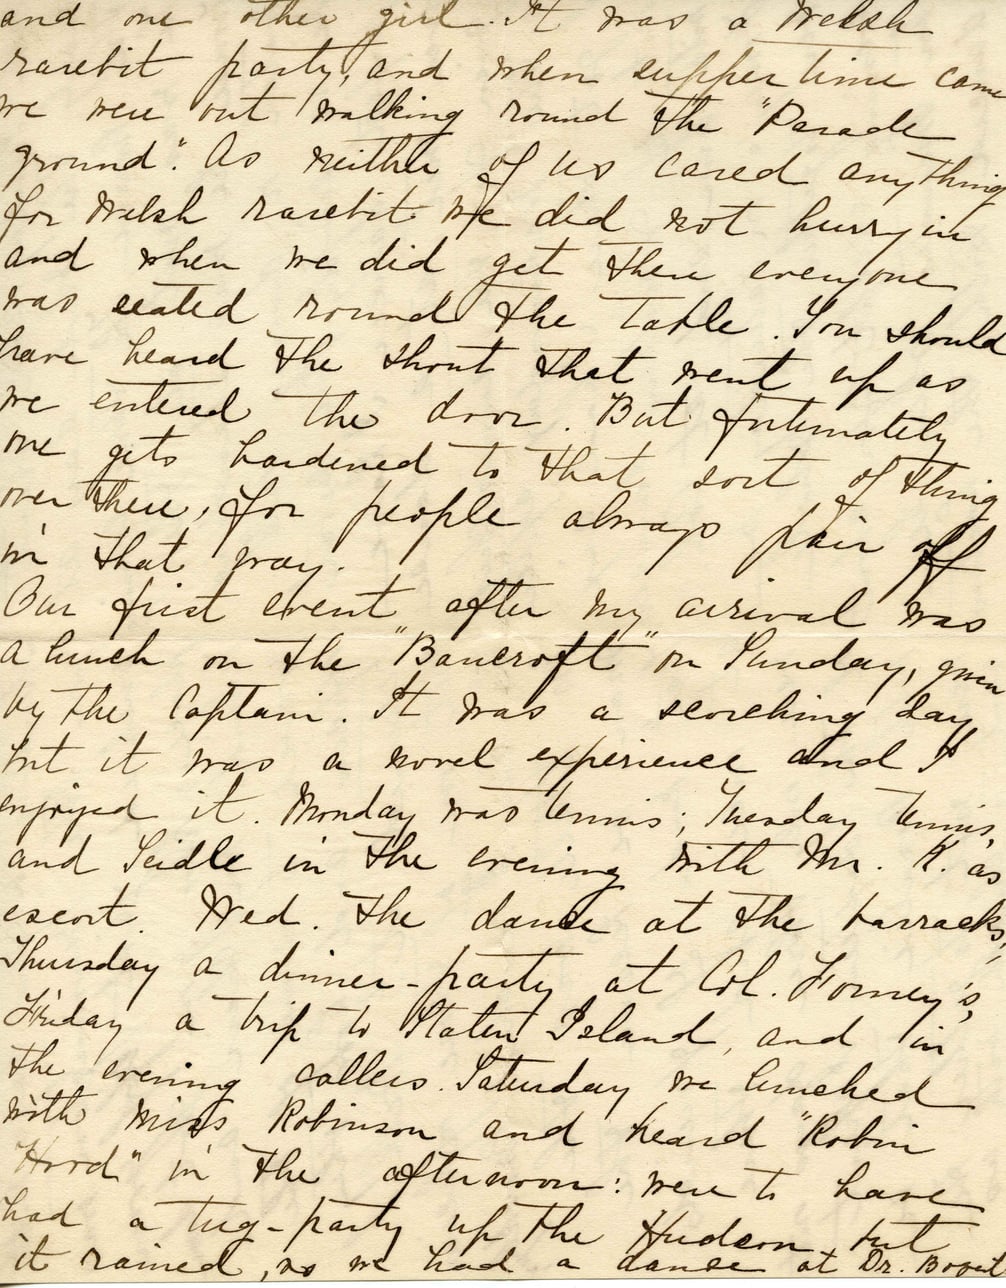 and one other girl. It was a Welsh
rarebit party, and when supper time came
we were out walking round the "Parade
ground". As neither of us cared anything
for Welsh rarebit we did not hurry in
and when we did get there everyone
was seated round the table. You should
have heard the shout that went up as
we entered the door. But fortunately
one gets hardened to that sort of thing
over there, for people always pair off
in that way.
Our first event after my arrival was
a lunch on the "Bancroft" on Sunday, given
by the Captain. It was a scorching day,
but it was a novel experience and I
enjoyed it. Monday was tennis; Tuesday tennis,
and Seidle in the evening with Mr. K. as
escort. Wed. the dance at the barracks;
Thursday a dinner-party at Col. Forney's,
Friday a trip to Staten Island, and in
the evening callers. Saturday we lunched
with Miss Robinson and heard "Robin
Hood" in the afternoon: were to have
had a tug-party up the Hudson but
it rained, so we had a dance at Dr.